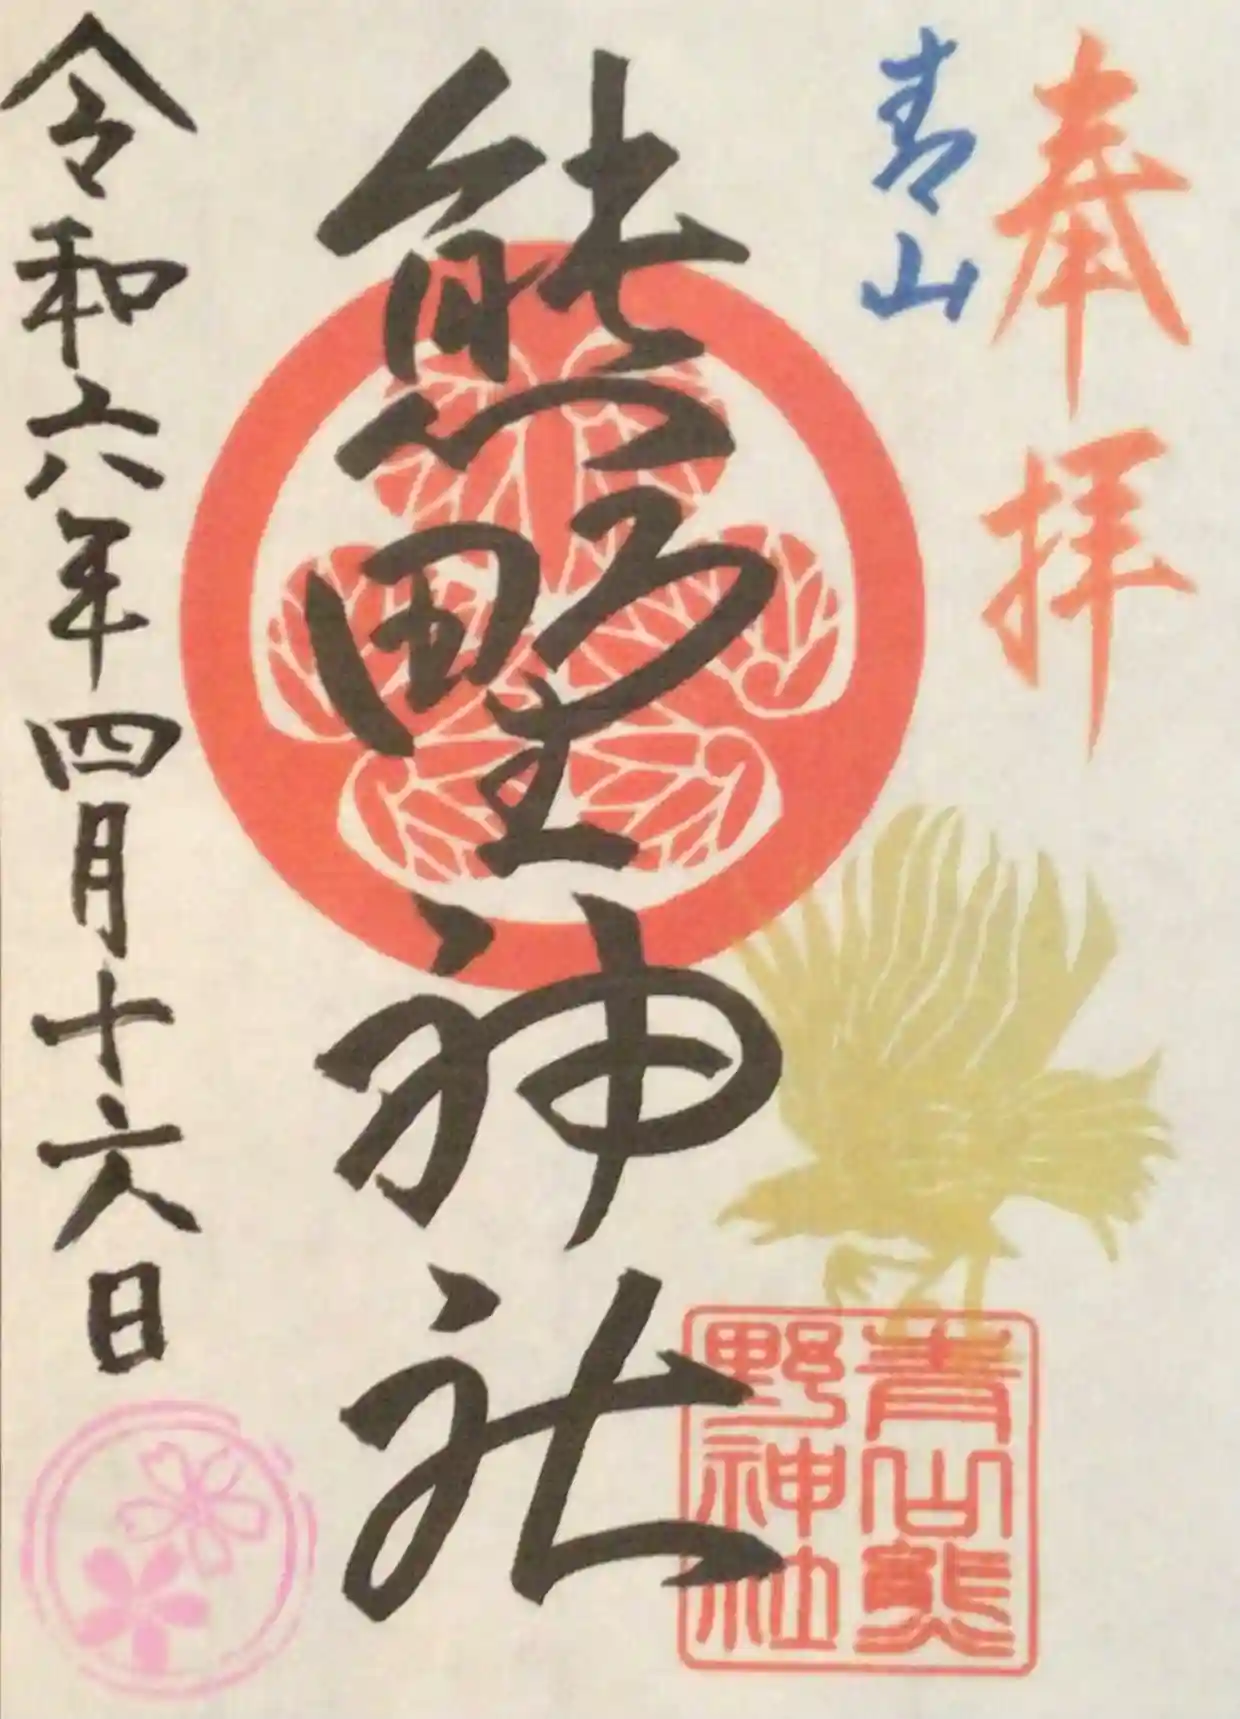 奉拝
青山
熊野神社
青山熊
野神社
令和六年四月十六日